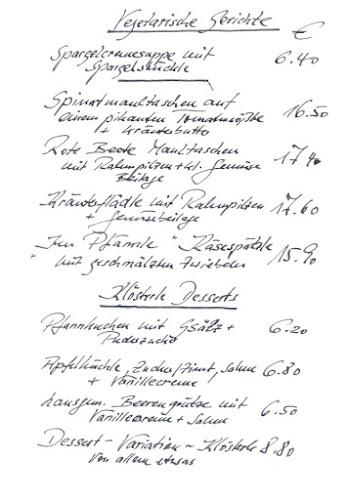 Vegetarische Gerichte €
Spargelcremesuppe mit 6.40
Spargelstückle
Spinatmaultaschen auf 16.50
einem pikanten Tomatensößle
+ Kräuterbutter
Rote Beete Maultaschen 17.40
mit Rahmpilzen + kl. Gemüse
Beilage
Kräuterflädle mit Rahmpilzen 17.60
+ Gemüsebeilage
Im Pfännle "Käsespätzle" 15.90
mit geschmälzten Zwiebeln
Klösterle Desserts
Pfannkuchen mit Gsälz + 6.20
Puderzucker
Apfelküchle, Zucker/Zimt, Sahne 6.80
+ Vanillecreme
hausgem. Beerengrütze mit 6.50
Vanillecreme + Sahne
Dessert-Variation ~ Klösterle 8.80
von allem etwas